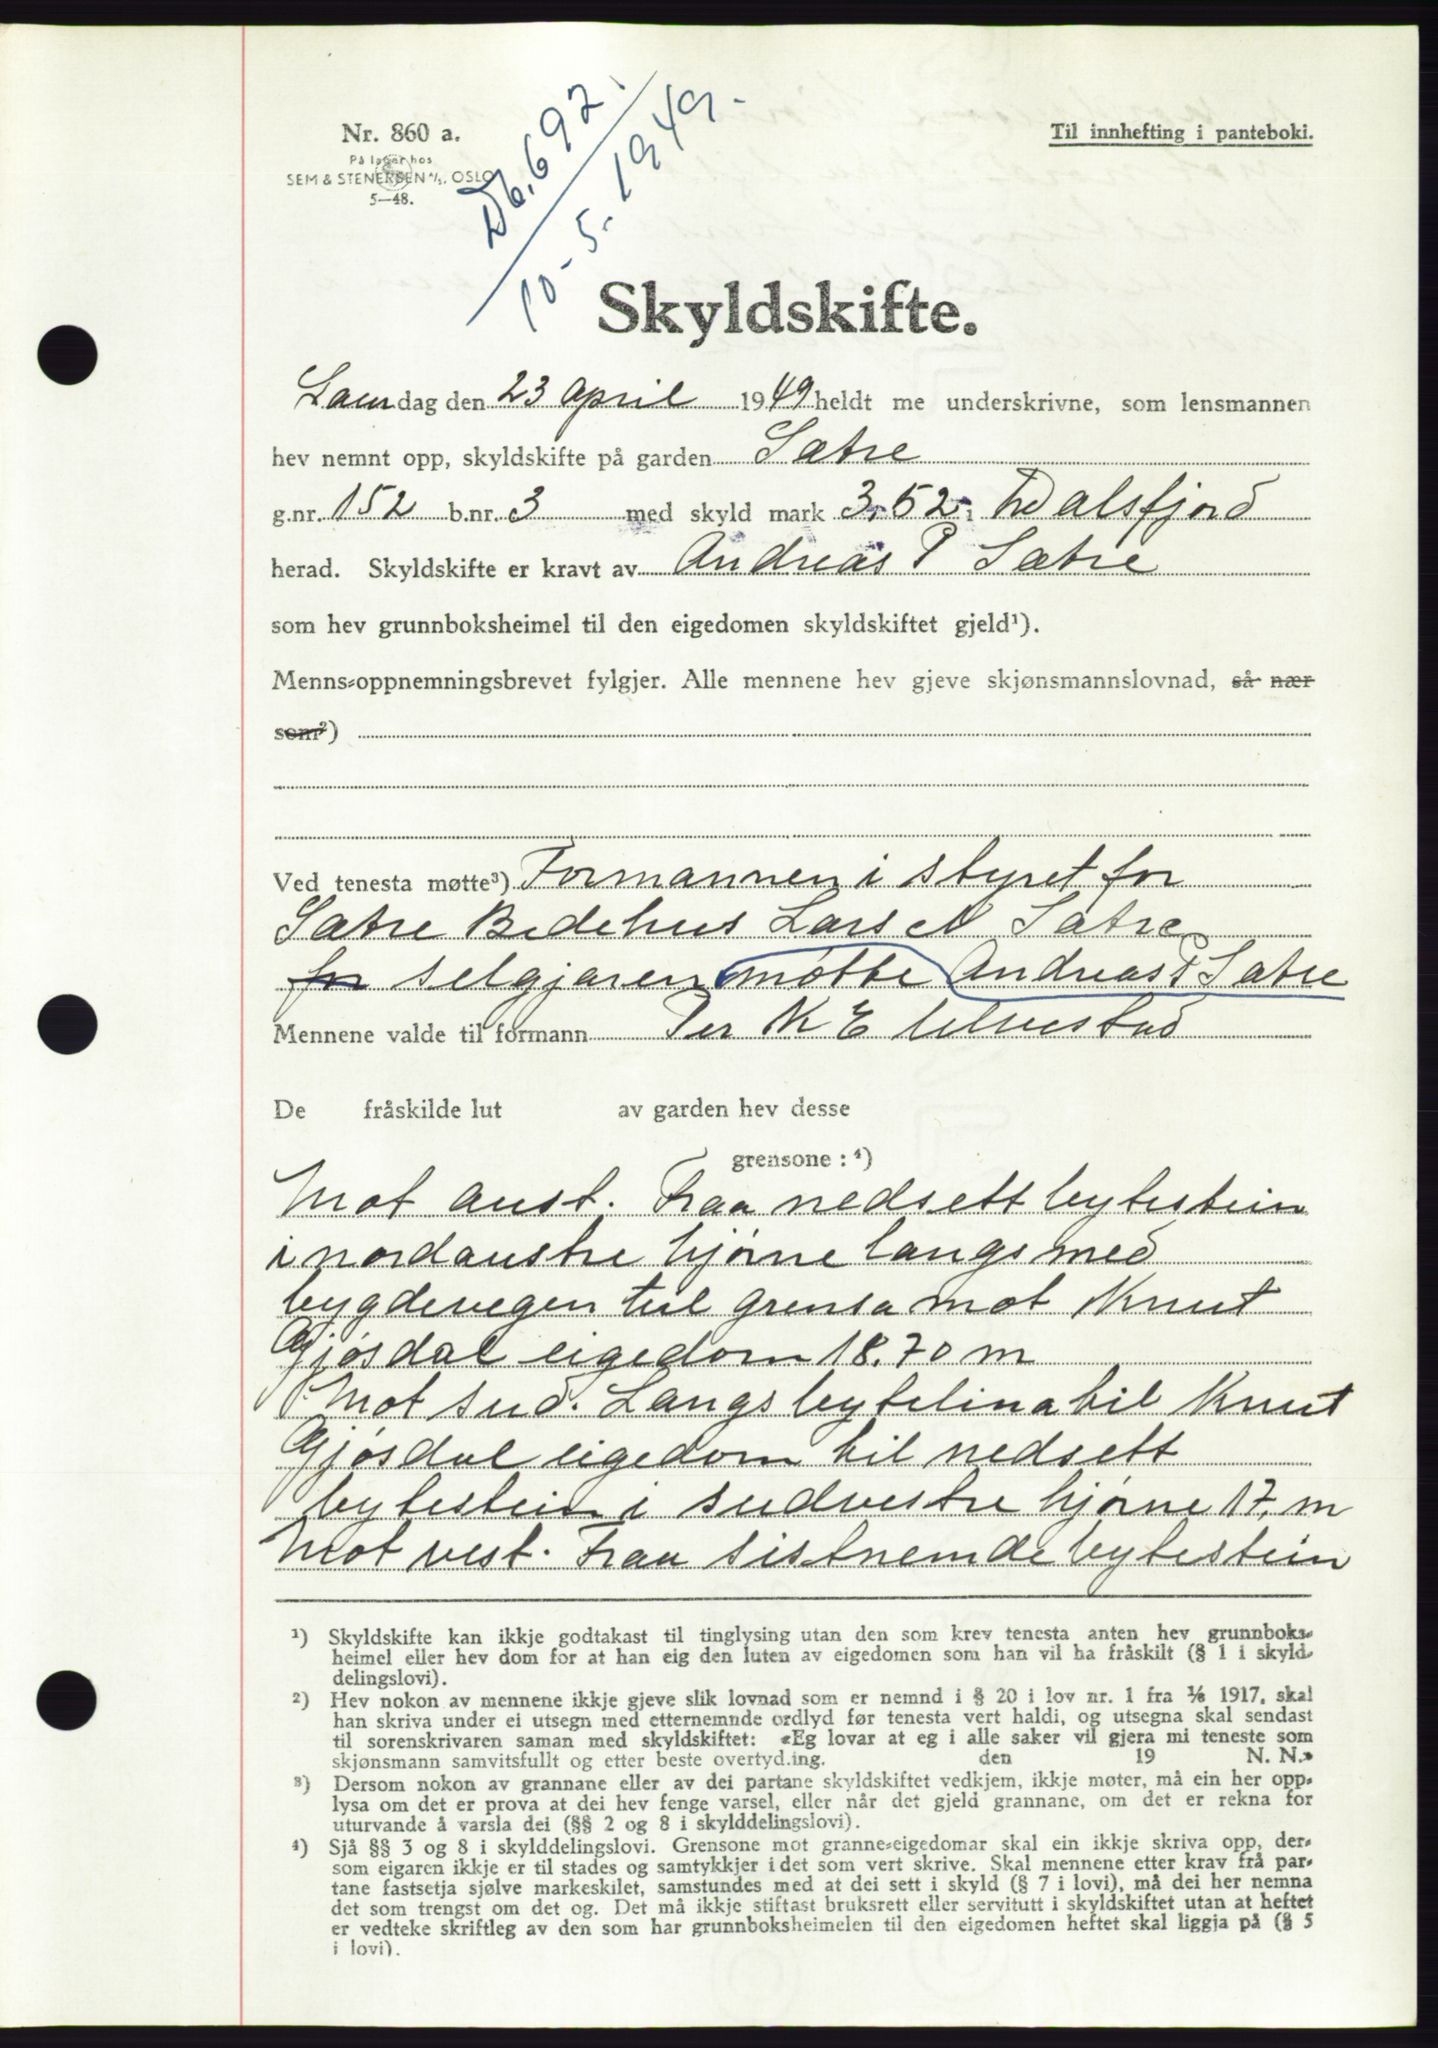 Nr. 860 a.
På lager hos
SEM & STENERSEN A/S, OSLO
5—48.
Db. 692
10-5. 1949.
Til innhefting i panteboki.
Skyldskifte.
Laurdag den 23 april 1949 heldt me underskrivne, som lensmannen
hev nemnt opp, skyldskifte på garden Satre
g.nr. 152 b.nr. 3 med skyld mark 3,52 i Dalsfjord
herad. Skyldskifte er kravt av Andreas P Satre
som hev grunnboksheimel til den eigedomen skyldskiftet gjeld¹).
Menns-oppnemningsbrevet fylgjer. Alle mennene hev gjeve skjønsmannslovnad, så nær
som²)
Ved tenesta møtte³) Formannen i styret for
Satre Bedehus Lars A Satre
for selgjaren møtte Andreas P Satre
Mennene valde til formann Per K E Ulvestad
De fråskilde lut av garden hev desse
grensone : ⁴)
Mot aust. Fraa nedsett bytestein
i nordaustre hjørne langs med
bygdevegen til grensa mot Knut
Gjøsdal eigedom 18.70 m
Mot sud. Langs bytelina til Knut
Gjøsdal eigedom til nedsett
bytestein i sudvestre hjørne 17, m
Mot vest. Fraa sistnemde bytestein
¹) Skyldskifte kan ikkje godtakast til tinglysing utan den som krev tenesta anten hev grunnboks-
heimel eller hev dom for at han eig den luten av eigedomen som han vil ha fråskilt (§ 1 i skyld-
delingslovi).
²) Hev nokon av mennene ikkje gjeve slik lovnad som er nemnd i § 20 i lov nr. 1 fra 1/6 1917, skal
han skriva under ei utsegn med etternemnde ordlyd før tenesta vert haldi, og utsegna skal sendast
til sorenskrivaren saman med skyldskiftet: «Eg lovar at eg i alle saker vil gjera mi teneste som
skjønsmann samvitsfullt og etter beste overtyding. den 19 N. N.»
³) Dersom nokon av grannane eller av dei partane skyldskiftet vedkjem, ikkje møter, må ein her opp-
lysa om det er prova at dei hev fenge varsel, eller når det gjeld grannane, om det er rekna for
uturvande å varsla dei (§§ 2 og 8 i skylddelingslovi).
⁴) Sjå §§ 3 og 8 i skylddelingslovi. Grensone mot granne-eigedomar skal ein ikkje skriva opp, der-
som eigaren ikkje er til stades og samtykkjer i det som vert skrive. Skal mennene etter krav frå par-
tane fastsetja sjølve markeskilet, samstundes med at dei sett i skyld (§ 7 i lovi), må dei her nemna
det som trengst om det og. Det må ikkje stiftast bruksrett eller servitutt i skyldskiftet utan at heftet
er vedteke skriftleg av den som har grunnboksheimelen til den eigedomen heftet skal liggja på (§ 5
i lovi).